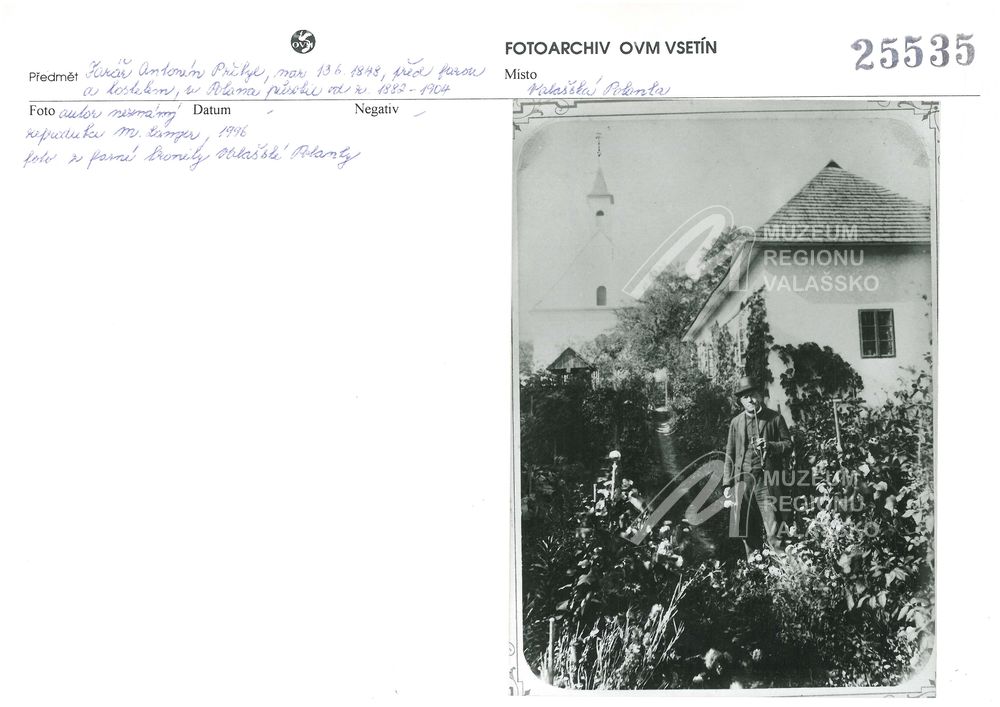 OVM
FOTOARCHIV OVM VSETÍN
25535
Předmět Farář Antonín Přikyl, nar. 13.6. 1848, před farou
a kostelem, v Polané působil od r. 1882 - 1904
Místo
Valašská Polanka
Foto autor neznámý Datum - Negativ -
reprodukce M. Langer, 1996
foto z farné kroniky Valašské Polanky
MUZEUM
REGIONU
VALAŠSKO
MUZEUM
REGIONU
VALAŠSKO